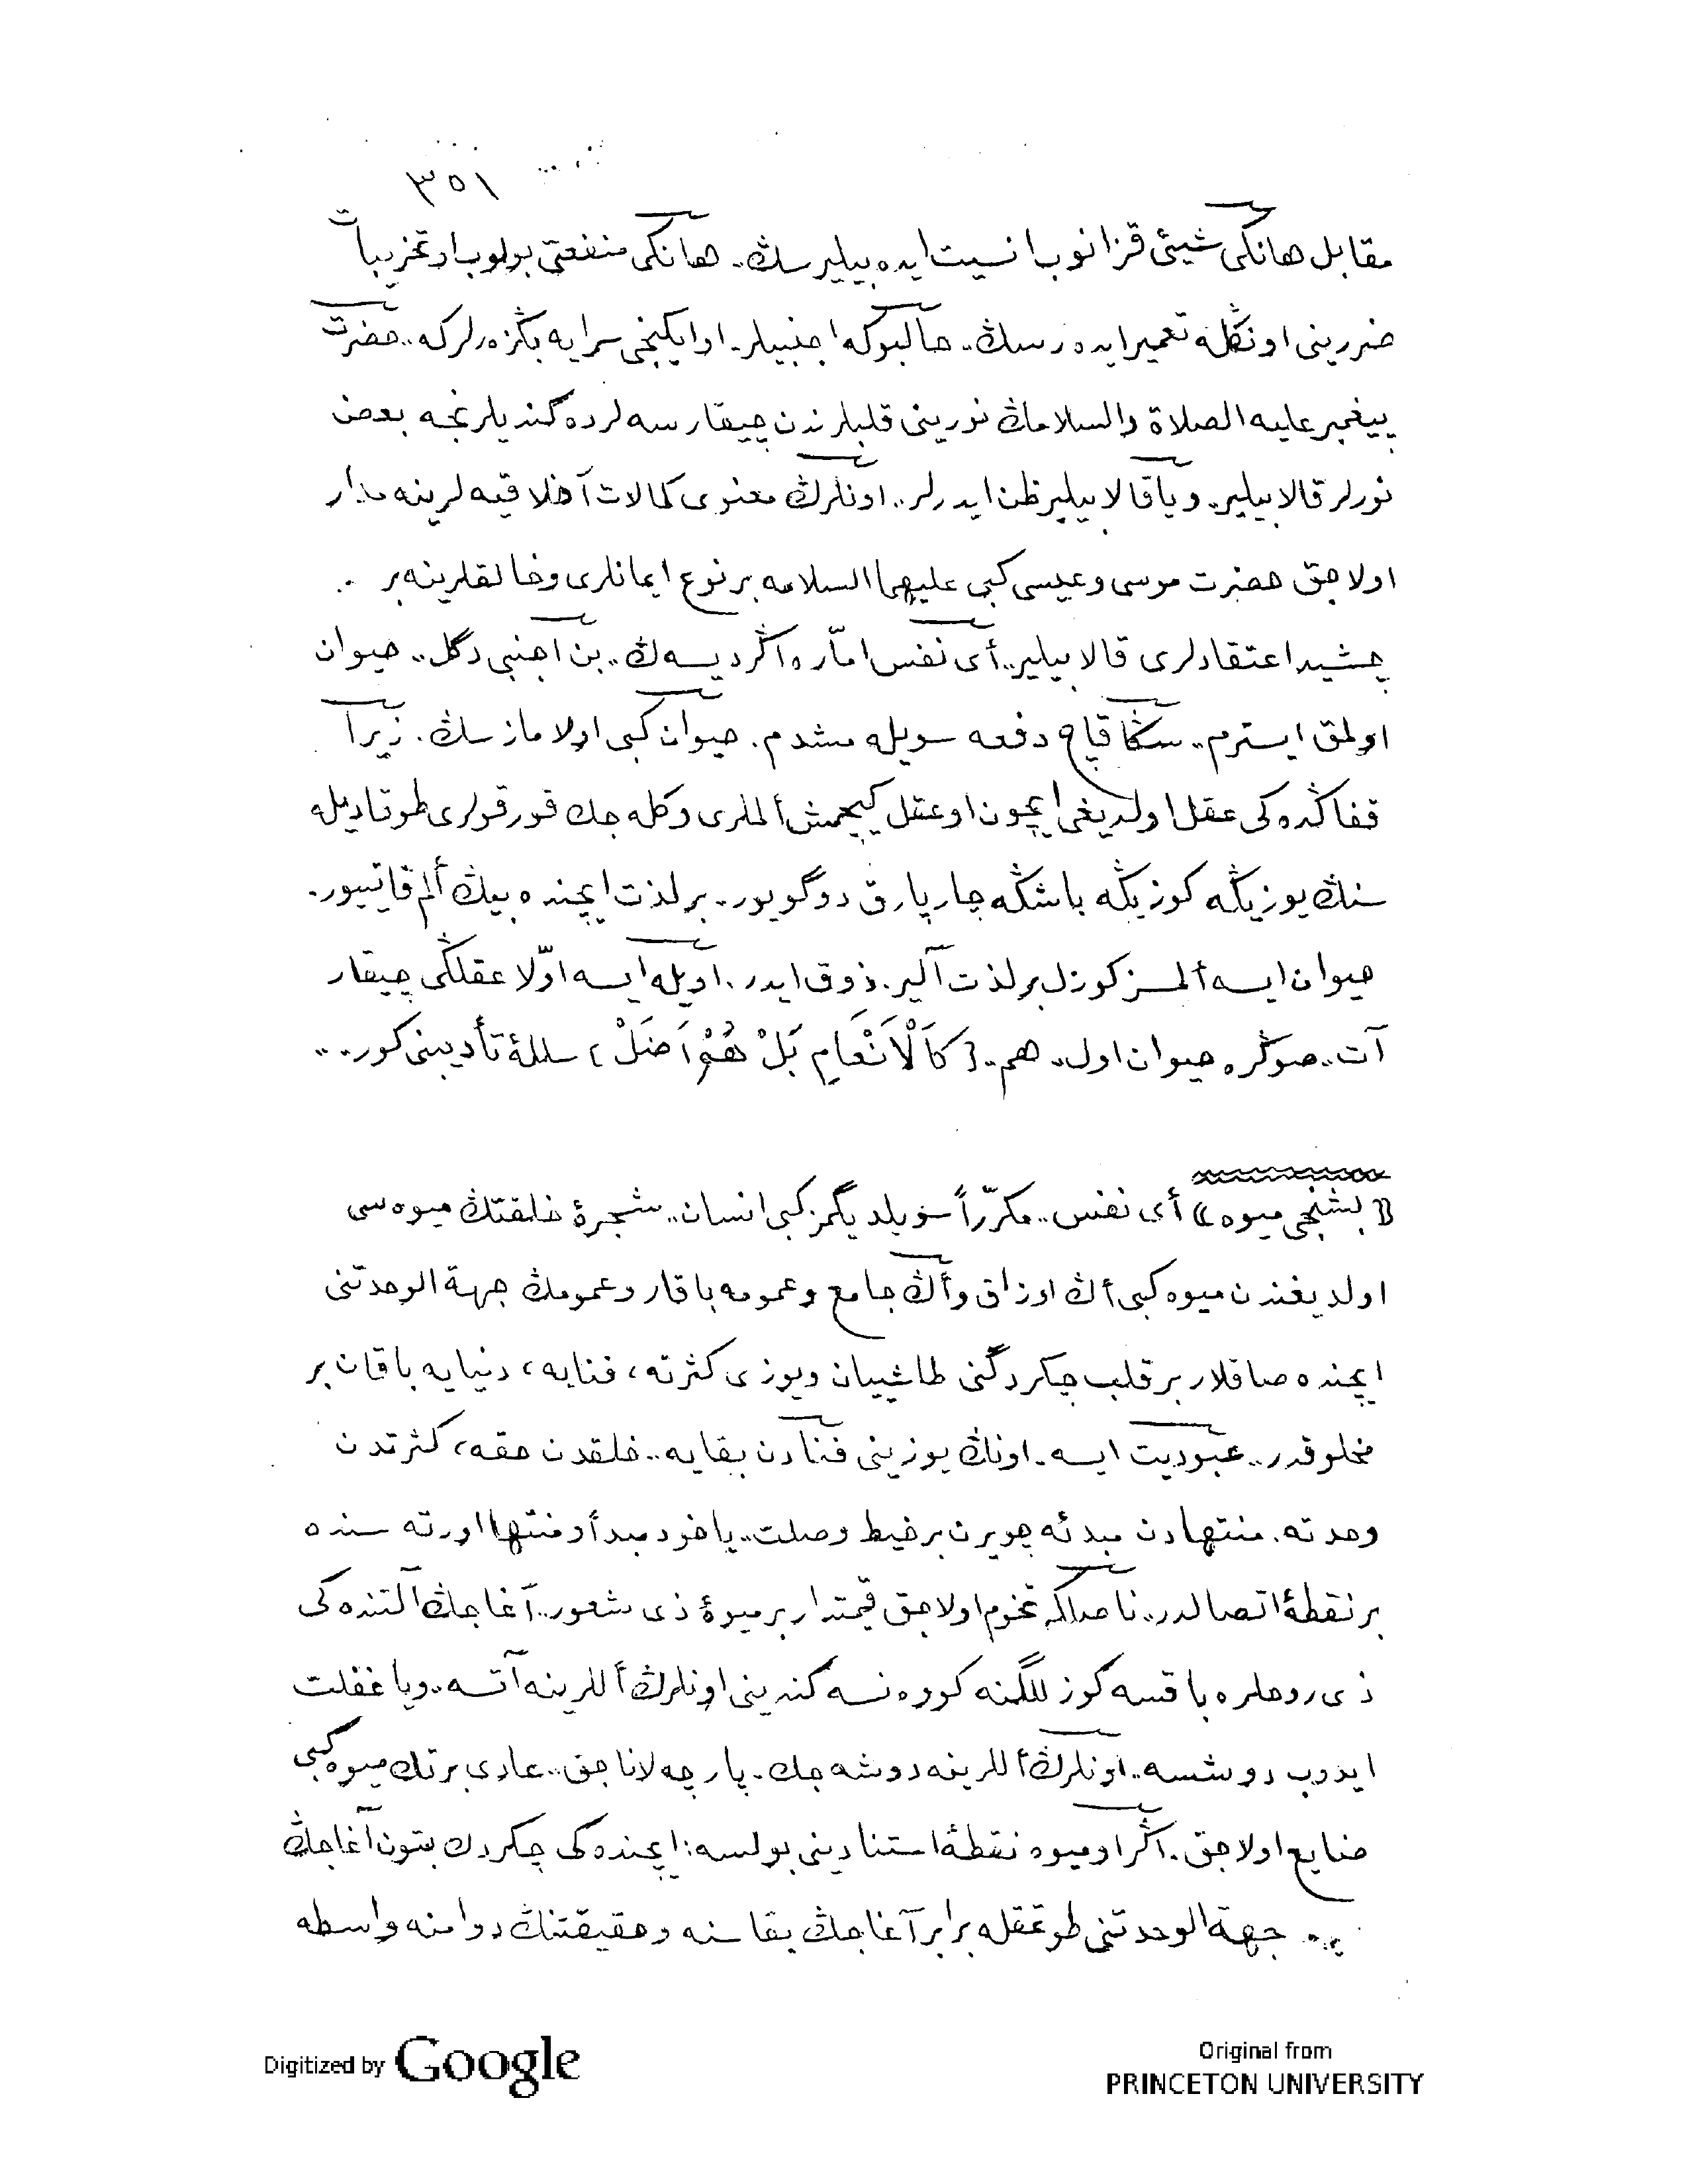 ٣٥١
مقابل هانكى شيئى قزانوب انسيت ايده بيلير سڭ. هانكى منفعتى بولوب او تخريبات
ضررينى اونڭله تعمير ايده رسڭ. حالبوكه اجنبيلر. او ايكنجى سرايه بڭزه رلركه.. حضرت
پيغمبر عليه الصلاة والسلامڭ نورينى قلبلرندن چيقارسه لرده كنديلرنجه بعض
نورلر قالابيلير.. ويا قالابيلير ظن ايدرلر.. اونلرڭ معنوى كمالات آخلاقيه لرينه مدار
اولاجق حضرت موسى وعيسى كبى عليهما السلامه بر نوع ايمانلرى وخالقلرينه بر
چشيد اعتقادلرى قالابيلير.. أى نفس امّاره اڭر ديسه ڭ.. بن اجنبى دگل.. حيوان
اولمق ايسترم.. سڭا قاچ دفعه سويله مشدم. حيوان كبى اولامازسڭ. زيرا
قفاڭده كى عقل اولديغى ايچون او عقل كيچمش ألملرى وكله جك قورقولرى طوقاديله
سنڭ يوزيڭه كوزيڭه باشڭه چارپارق دوگويور.. بر لذت ايچنده بيڭ ألم قاتييور.
حيوان ايسه ألمسز كوزل بر لذت آلير. ذوق ايدر. اويله ايسه اوّلا عقلڭى چيقار
آت.. صوڭره حيوان اول.. هم.. ﴿ كَاَلْاَنْعَامِ بَلْ هُمْ اَضَلْ ﴾ سللۀ تأديبنى كور...
« بشنجى ميوه » أى نفس.. مكرّراً سويلديگمز كبى انسان.. شجرۀ خلقتڭ ميوه سى
اولديغندن ميوه كبى أڭ اوزاق وأڭ جامع وعمومه باقار وعمومڭ جهة الوحدتنى
ايچنده صاقلار بر قلب چكردگنى طاشييان ويوزى كثرته، فنايه، دنيايه باقان بر
مخلوقدر.. عبوديت ايسه. اونڭ يوزينى فنادن بقايه.. خلقدن حقه، كثرتدن
وحدته. منتهادن مبدئه چويرن بر خيط وصلت.. ياخود مبدأ ومنتها اورته سنده
بر نقطۀ اتصالدر.. ناصلكه تخوم اولاجق قيمتدار بر ميوۀ ذى شعور.. آغاجڭ آلتنده كى
ذى روحلره باقسه كوزللگنه كوه نسه كندينى اونلرڭ أللرينه آتسه.. ويا غفلت
ايدوب دوشسه.. اونلرڭ أللرينه دوشه جك. پارچه لاناجق.. عادى برتك ميوه كبى
ضايع اولاجق. اڭر او ميوه نقطۀ استنادينى بولسه: ايچنده كى چكردك بتون آغاجڭ
جهة الوحدتنى طوتمقله برابر آغاجڭ بقاسنه وحقيقتنڭ دوامنه واسطه
Digitized by Google
Original from
PRINCETON UNIVERSITY